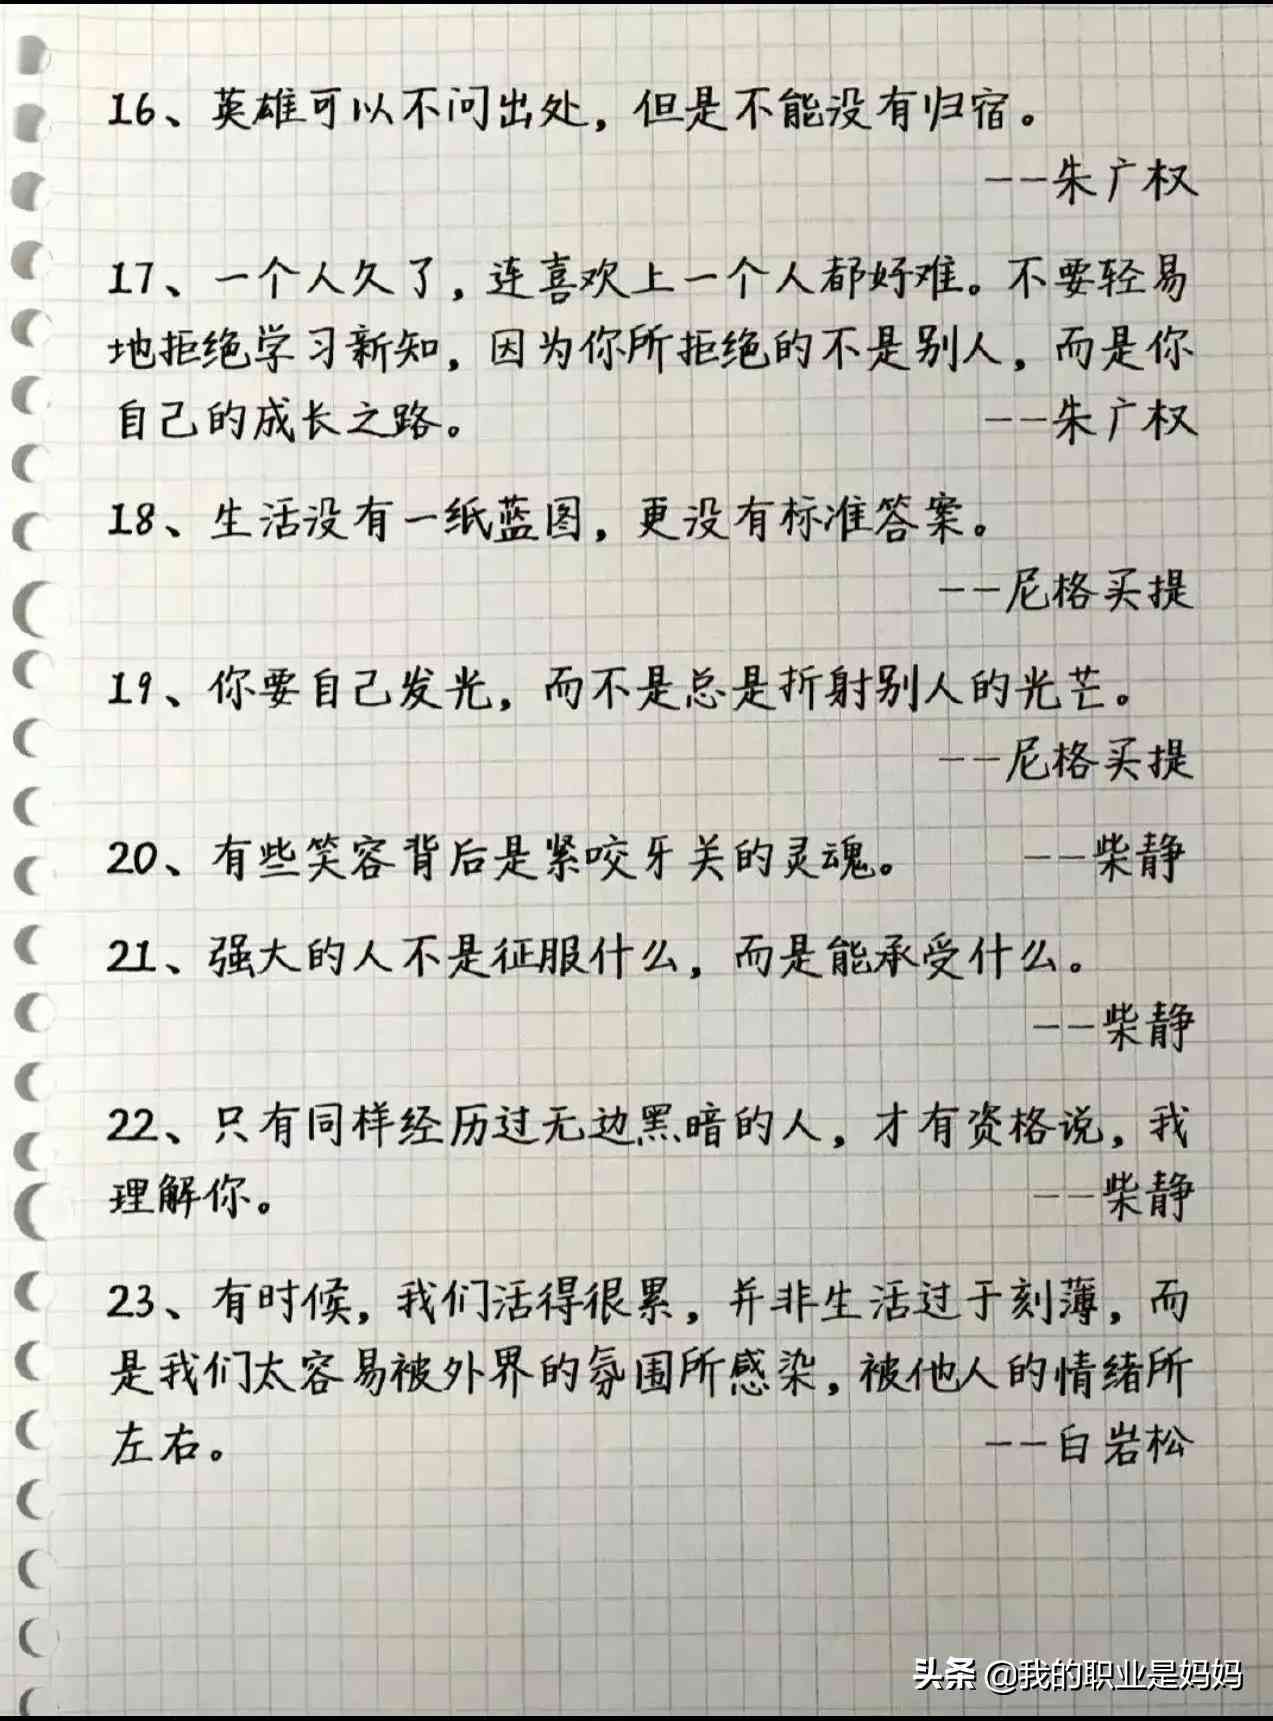 16、英雄可以不问出处，但是不能没有归宿。
--朱广权
17、一个人久了，连喜欢上一个人都好难。不要轻易
地拒绝学习新知，因为你所拒绝的不是别人，而是你
自己的成长之路。 --朱广权
18、生活没有一纸蓝图，更没有标准答案。
--尼格买提
19、你要自己发光，而不是总是折射别人的光芒。
--尼格买提
20、有些笑容背后是紧咬牙关的灵魂。 --柴静
21、强大的人不是征服什么，而是能承受什么。
--柴静
22、只有同样经历过无边黑暗的人，才有资格说，我
理解你。 --柴静
23、有时候，我们活得很累，并非生活过于刻薄，而
是我们太容易被外界的氛围所感染，被他人的情绪所
左右。 --白岩松
头条 @我的职业是妈妈